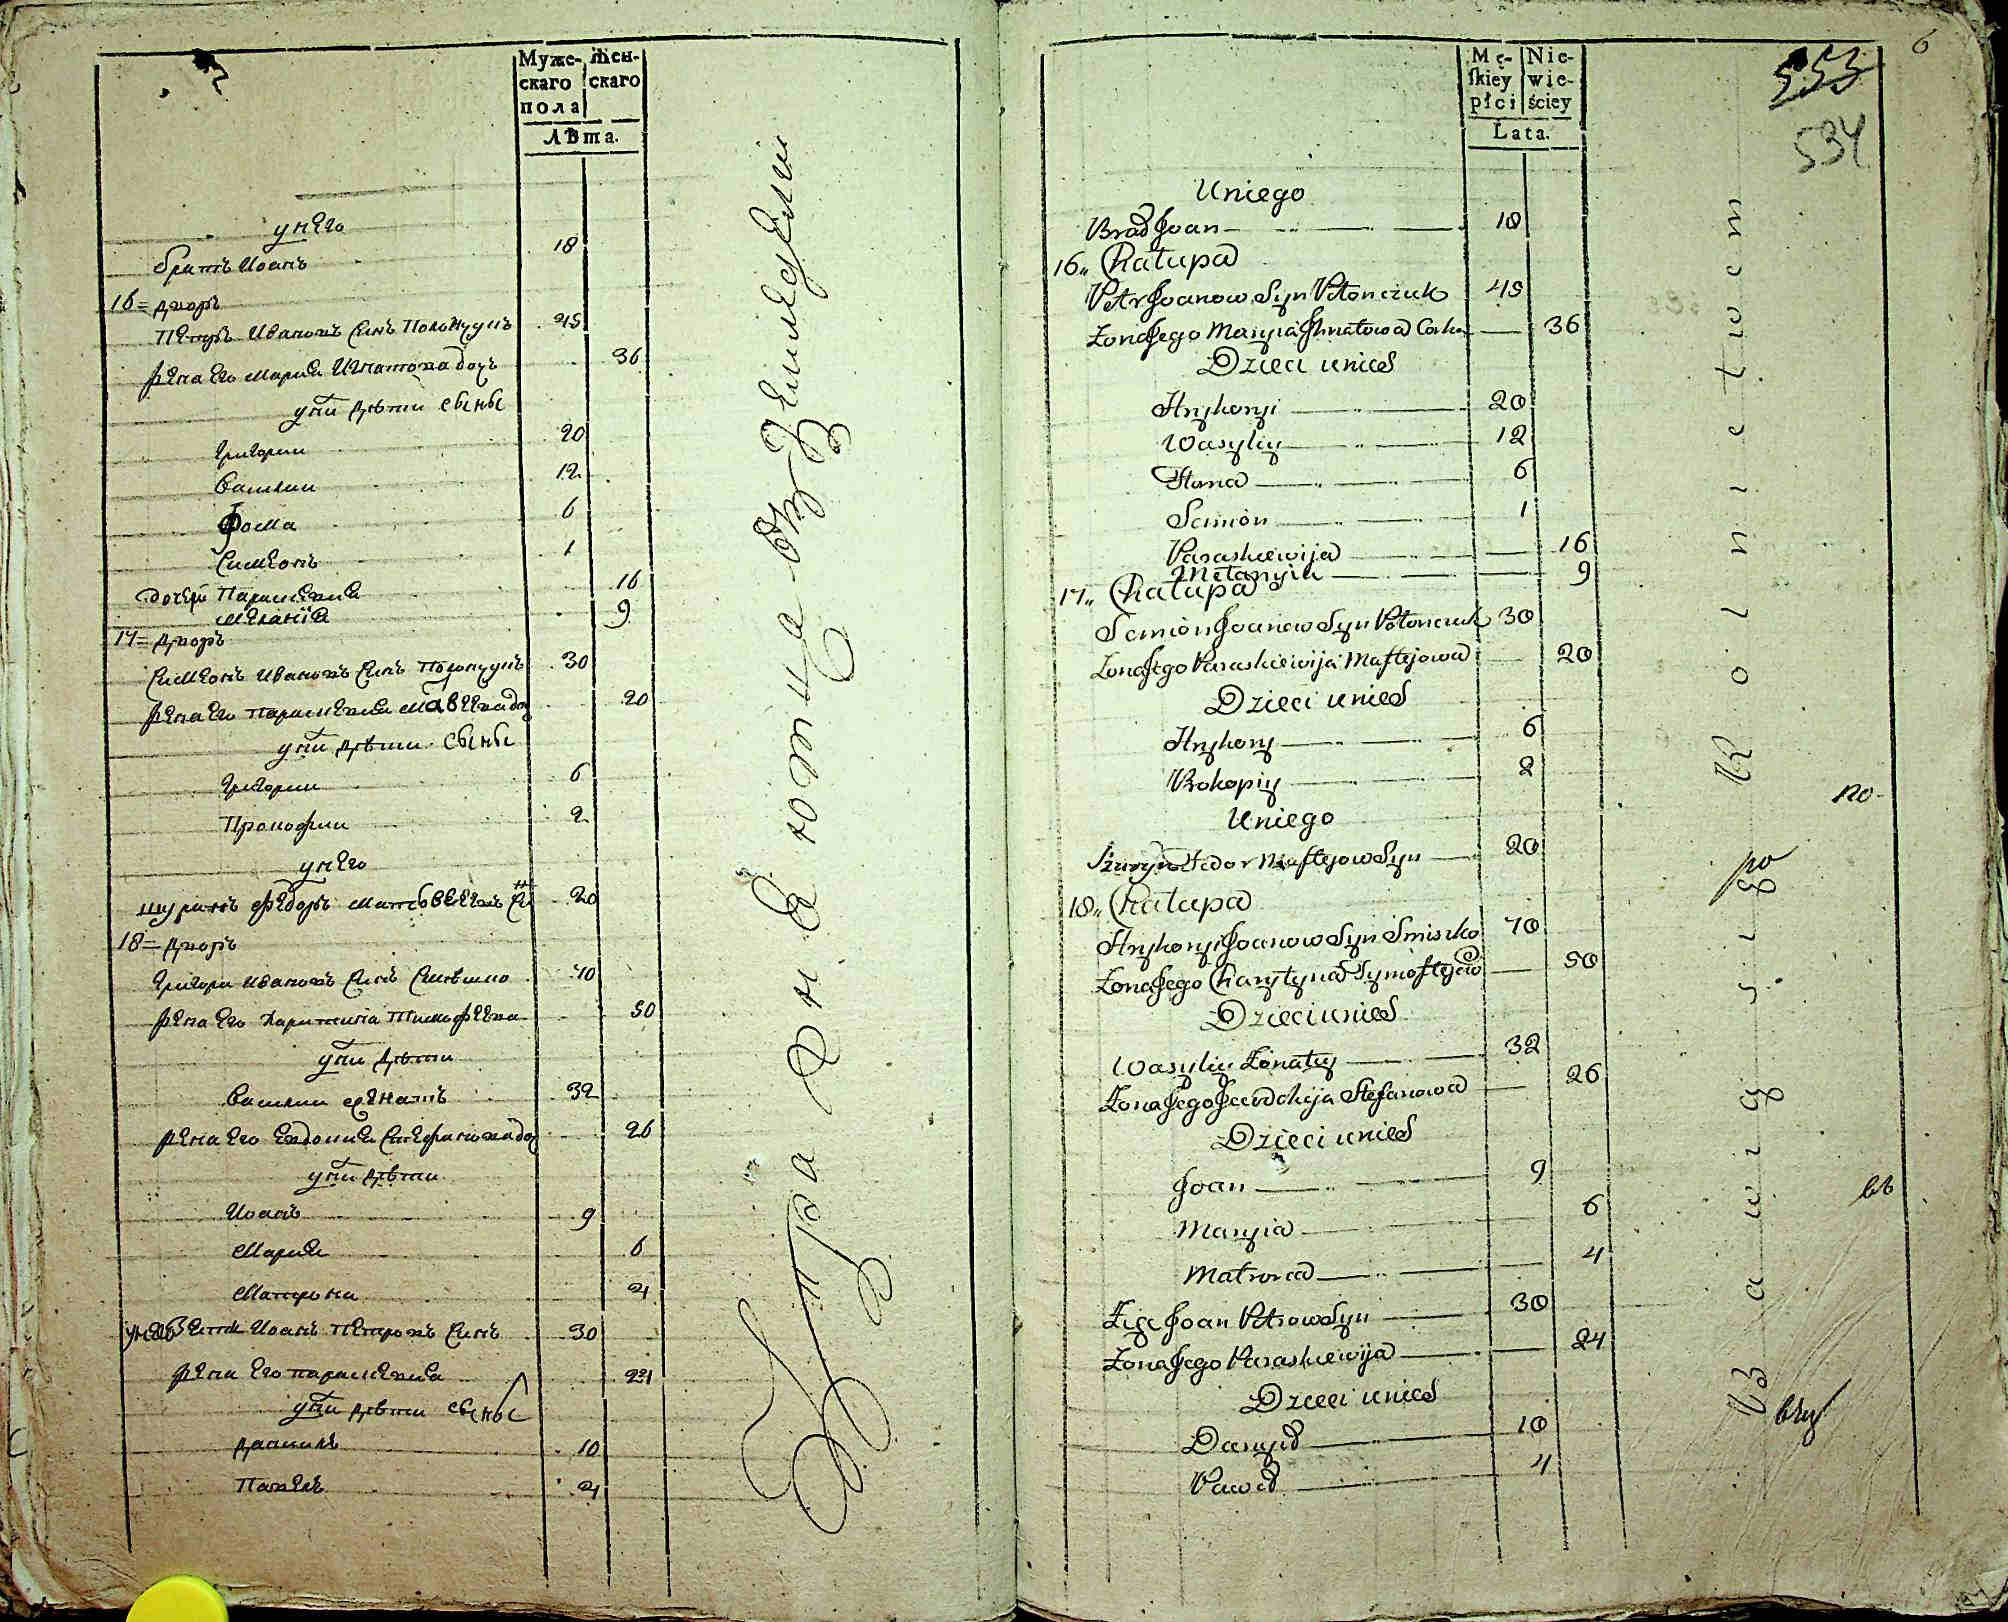 Муже-
скаго
пола
Жен-
скаго
Лѣта.
у него
братъ Иоанъ 18
16 = дворъ
Петръ Ивановъ синъ Полончукъ 45
жена его Мариа Игнатова доч 36
у них дѣти сыны
Григории 20
Василии 12
Фома 6
Симеонъ 1
дочери Параскевиа 16
Меланїа 9
17 = дворъ
Симеонъ Ивановъ синъ Полончукъ 30
жена его Параскевиа Матвеева доч 20
у них дѣти сыны
Григории 6
Прокофии 2
у него
шуринъ Федоръ Матвѣевъ синъ 20
18 = дворъ
Григори Ивановъ синъ 70
жена его Харитинїа Тимофеева 50
у них дѣти
Василии женатъ 32
жена его Евдокиа Стефанова доч 26
у них дѣти
Иоанъ 9
Мариа 6
Матрона 4
у него зять Иоанъ Петровъ синъ 30
жена его Параскевиа 24
у них дѣти сыны
Данилъ 10
Павелъ 4
Упражняютца въ земледелии
6
553
534
Mę-
skiey
płci
Nie-
wie-
ściey
Lata.
Uniego
Brad Joan 18
16„ Chałupa
Petr Joanow Syn Połonczuk 45
Zona Jego Maryia Ihnatowa Corka 36
Dzieci unich
Hryhoryi 20
Wasyliy 12
Homa 6
Semion 1
Paraskiewija 16
Mełanyia 9
17„ Chałupa
Semion Joanow Syn Połonczuk 30
Zona Jego Paraskiewija Maftejowa 20
Dzieci unich
Hryhory 6
Prokopiy 2
Uniego
Szuryn Fedor Maftejow Syn 20
18„ Chałupa
Hryhoryi Joanow Syn Smiszko 70
Zona Jego Charytyna Tymoftejow 50
Dzieci unich
Wasyliy Zonaty 32
Zona Jego Jewdokija Stefanowa 26
Dzieci unich
Joan 9
Maryia 6
Matrona 4
Zięć Joan Petrow Syn 30
Zona Jego Paraskiewija 24
Dzieci unich
Danyło 10
Paweł 4
Bawią się Rolnictwem
по